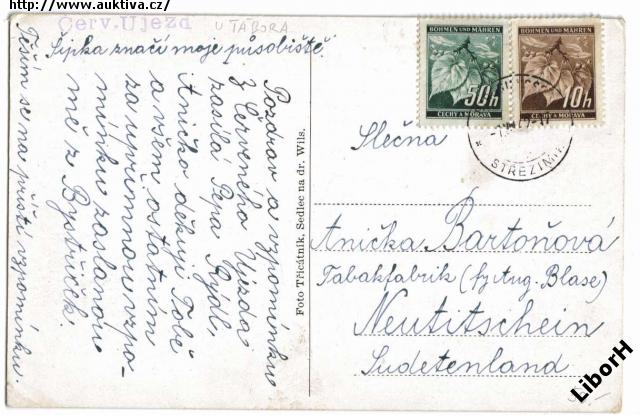 http://www.auktiva.cz/
Červ. Újezd
U TÁBORA
Šipka značí moje působiště.
BÖHMEN UND MÄHREN
50h
ČECHY A MORAVA
BÖHMEN UND MÄHREN
10h
ČECHY A MORAVA
STŘEZIMÍŘ
Pozdrav a vzpomínku
z Červeného Újezda
zasílá Pepa Rýdl.
Anička děkuji Tobě
a všem ostatním
za upřímnou vzpo-
mínku zaslanou
mě z Bystřiček.
Těším se na příští vzpomínku.
Foto Třicátník, Sedlec na dr. Wils.
Slečna
Anička Bartoňová
Tabakfabrik (fy Aug. Blase)
Neutitschein
Sudetenland
LiborH